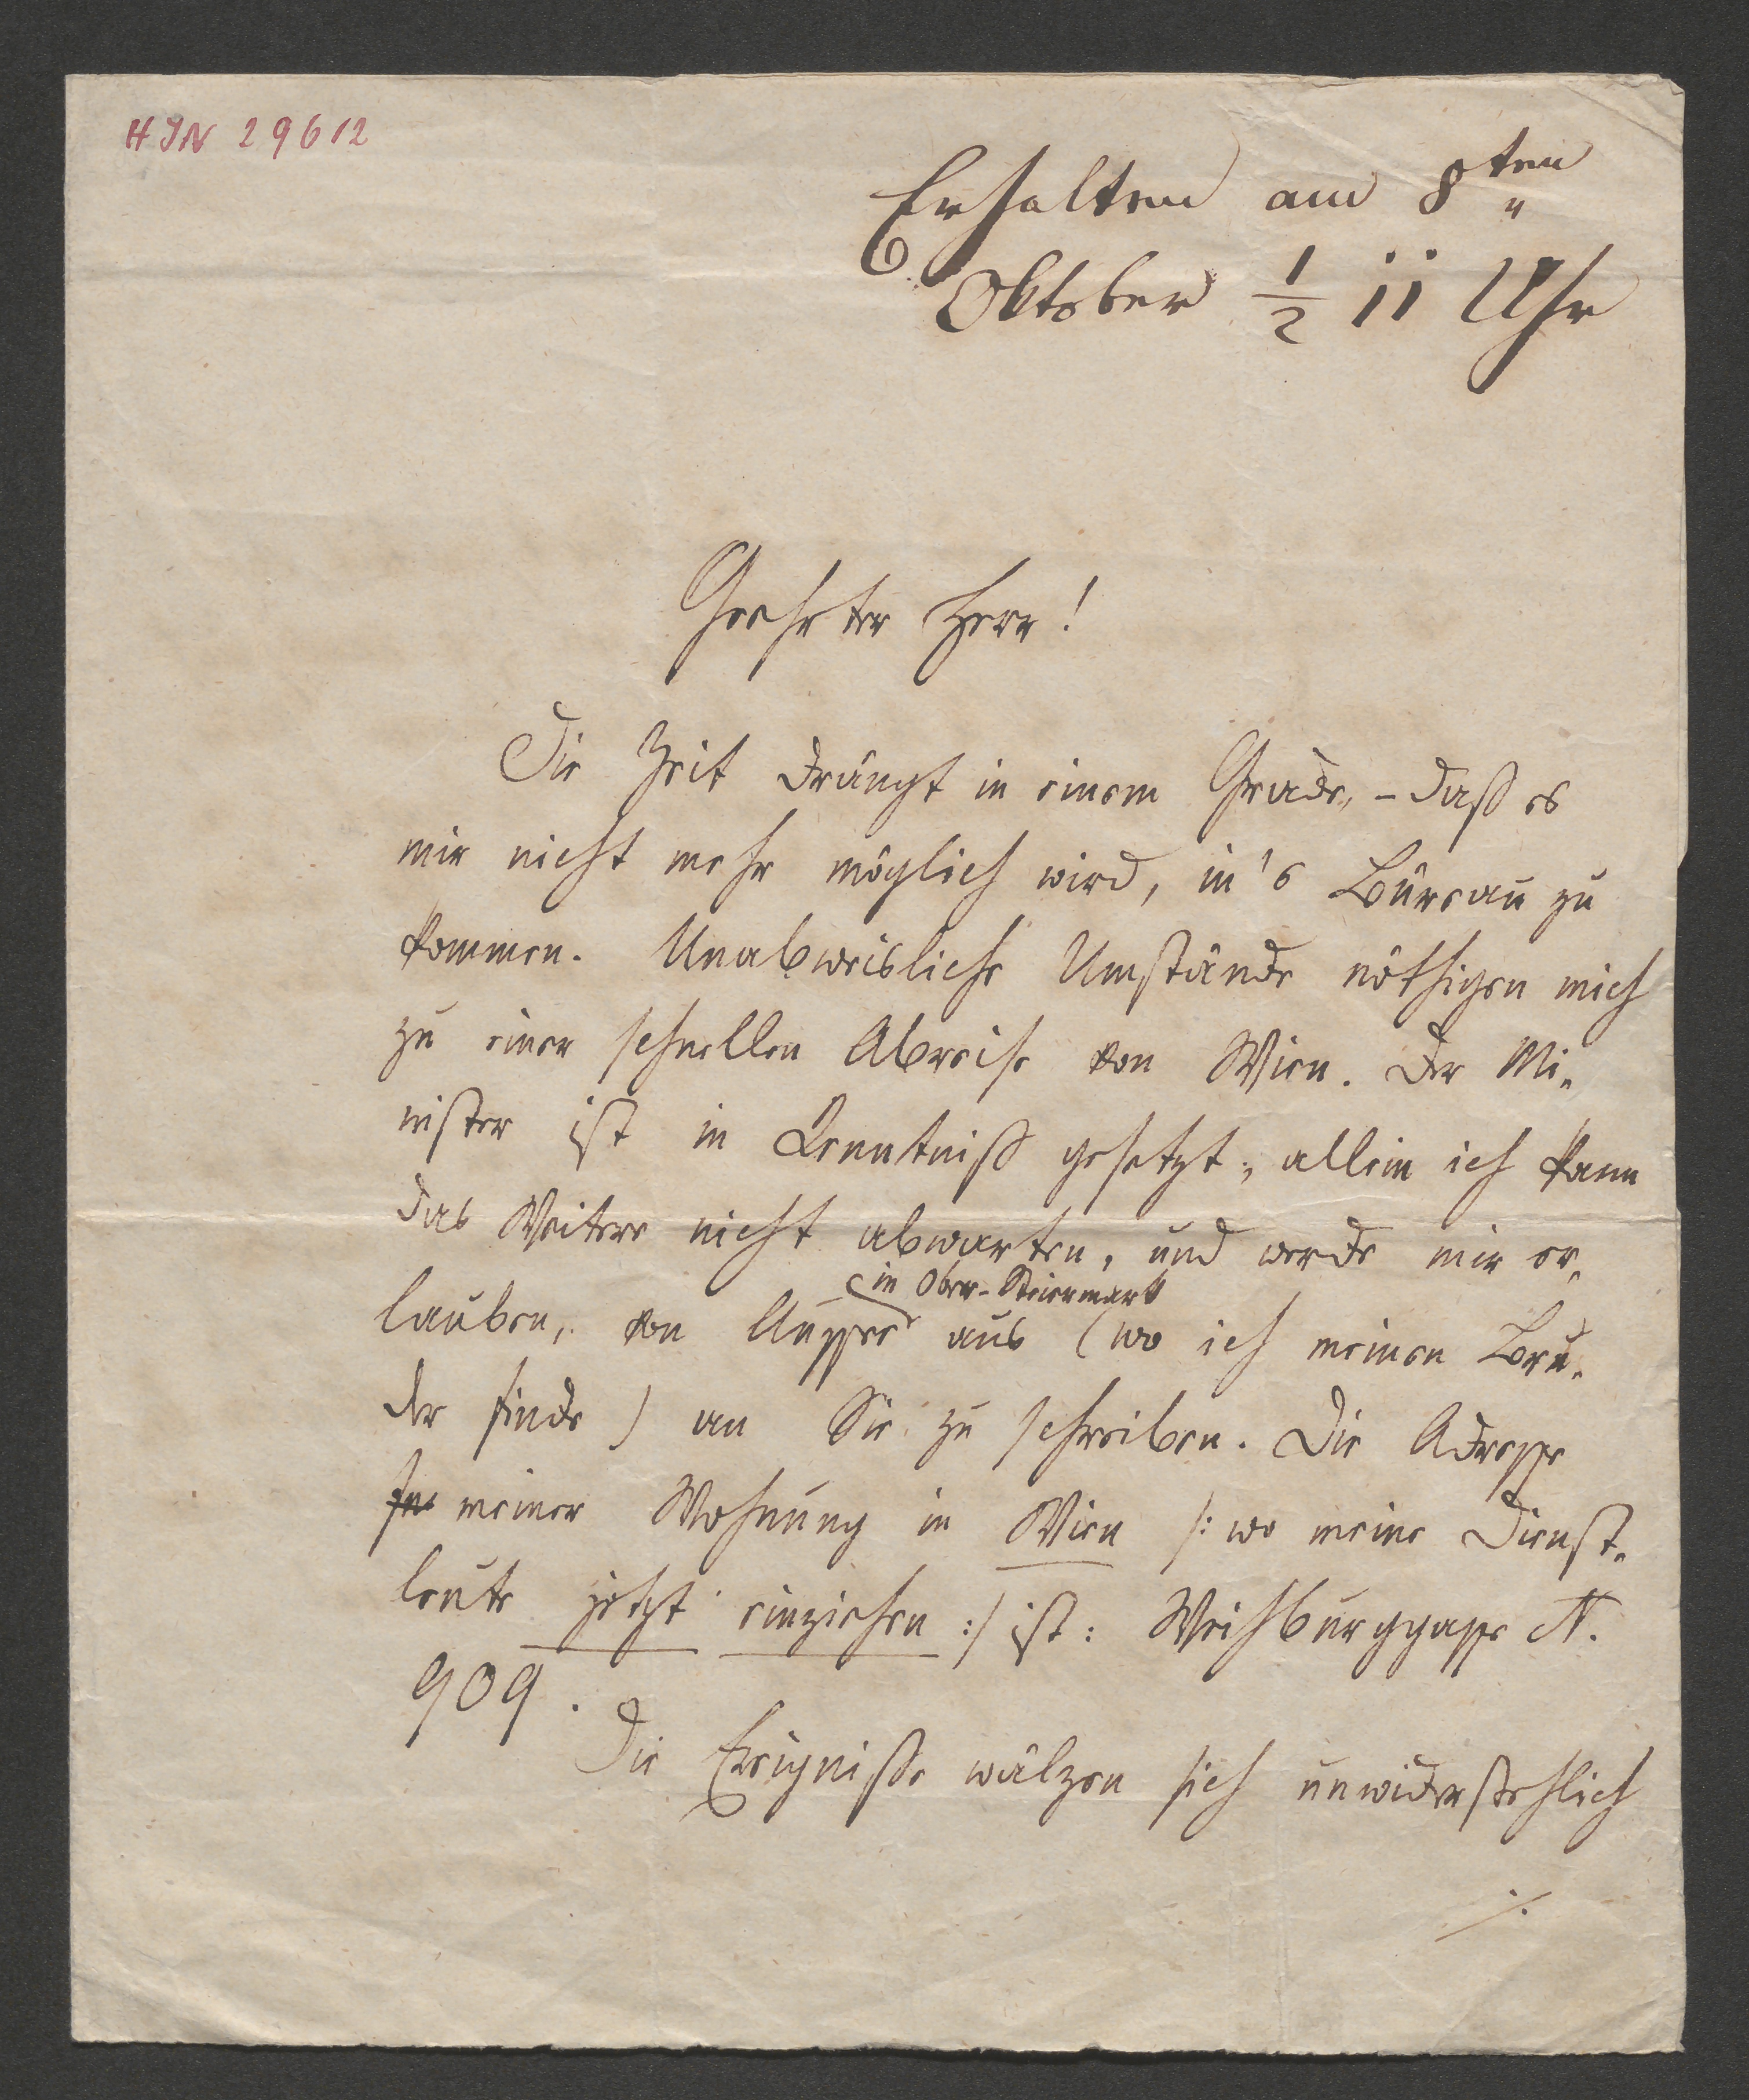 HIN 29612
Erhalten am 8ten
Oktober 1/2 11 Uhr
Geehrter Herr!
Die Zeit drängt in einem Grade, – daß es
mir nicht mehr möglich wird, in's Büreau zu
kommen. Unabweisliche Umstände nöthigen mich
zu einer schnellen Abreise von Wien. Der Mi-
nister ist in Kenntniß gesetzt; allein ich kann
das Weitere nicht abwarten, und werde mir er-
in Ober-Steiermark
lauben, von Aussee aus (wo ich meinen Bru-
der finde) an Sie zu schreiben. Die Adresse
meiner Wohnung in Wien /: wo meine Dienst-
leute jetzt einziehen :/ ist: Weihburggasse N.
909.
Die Ereigniße wälzen sich unwiderstehlich
./.